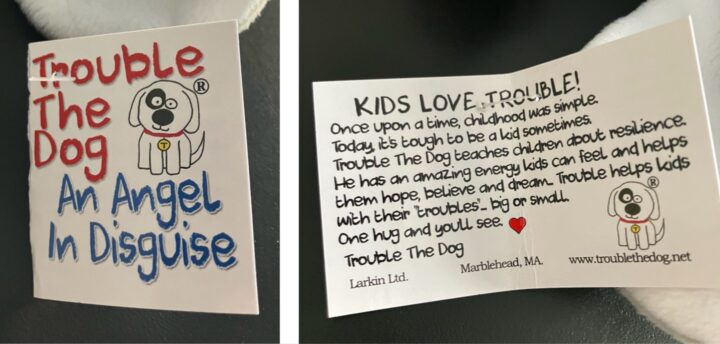 Trouble
The
Dog
®
T
An Angel
In Disguise
KIDS LOVE TROUBLE!
Once upon a time, childhood was simple.
Today, it's tough to be a kid sometimes.
Trouble The Dog teaches children about resilience.
He has an amazing energy kids can feel and helps
them hope, believe and dream... Trouble helps kids
with their "troubles"... big or small.
One hug and you'll see.
®
T
Trouble The Dog
Larkin Ltd.
Marblehead, MA.
www.troublethedog.net